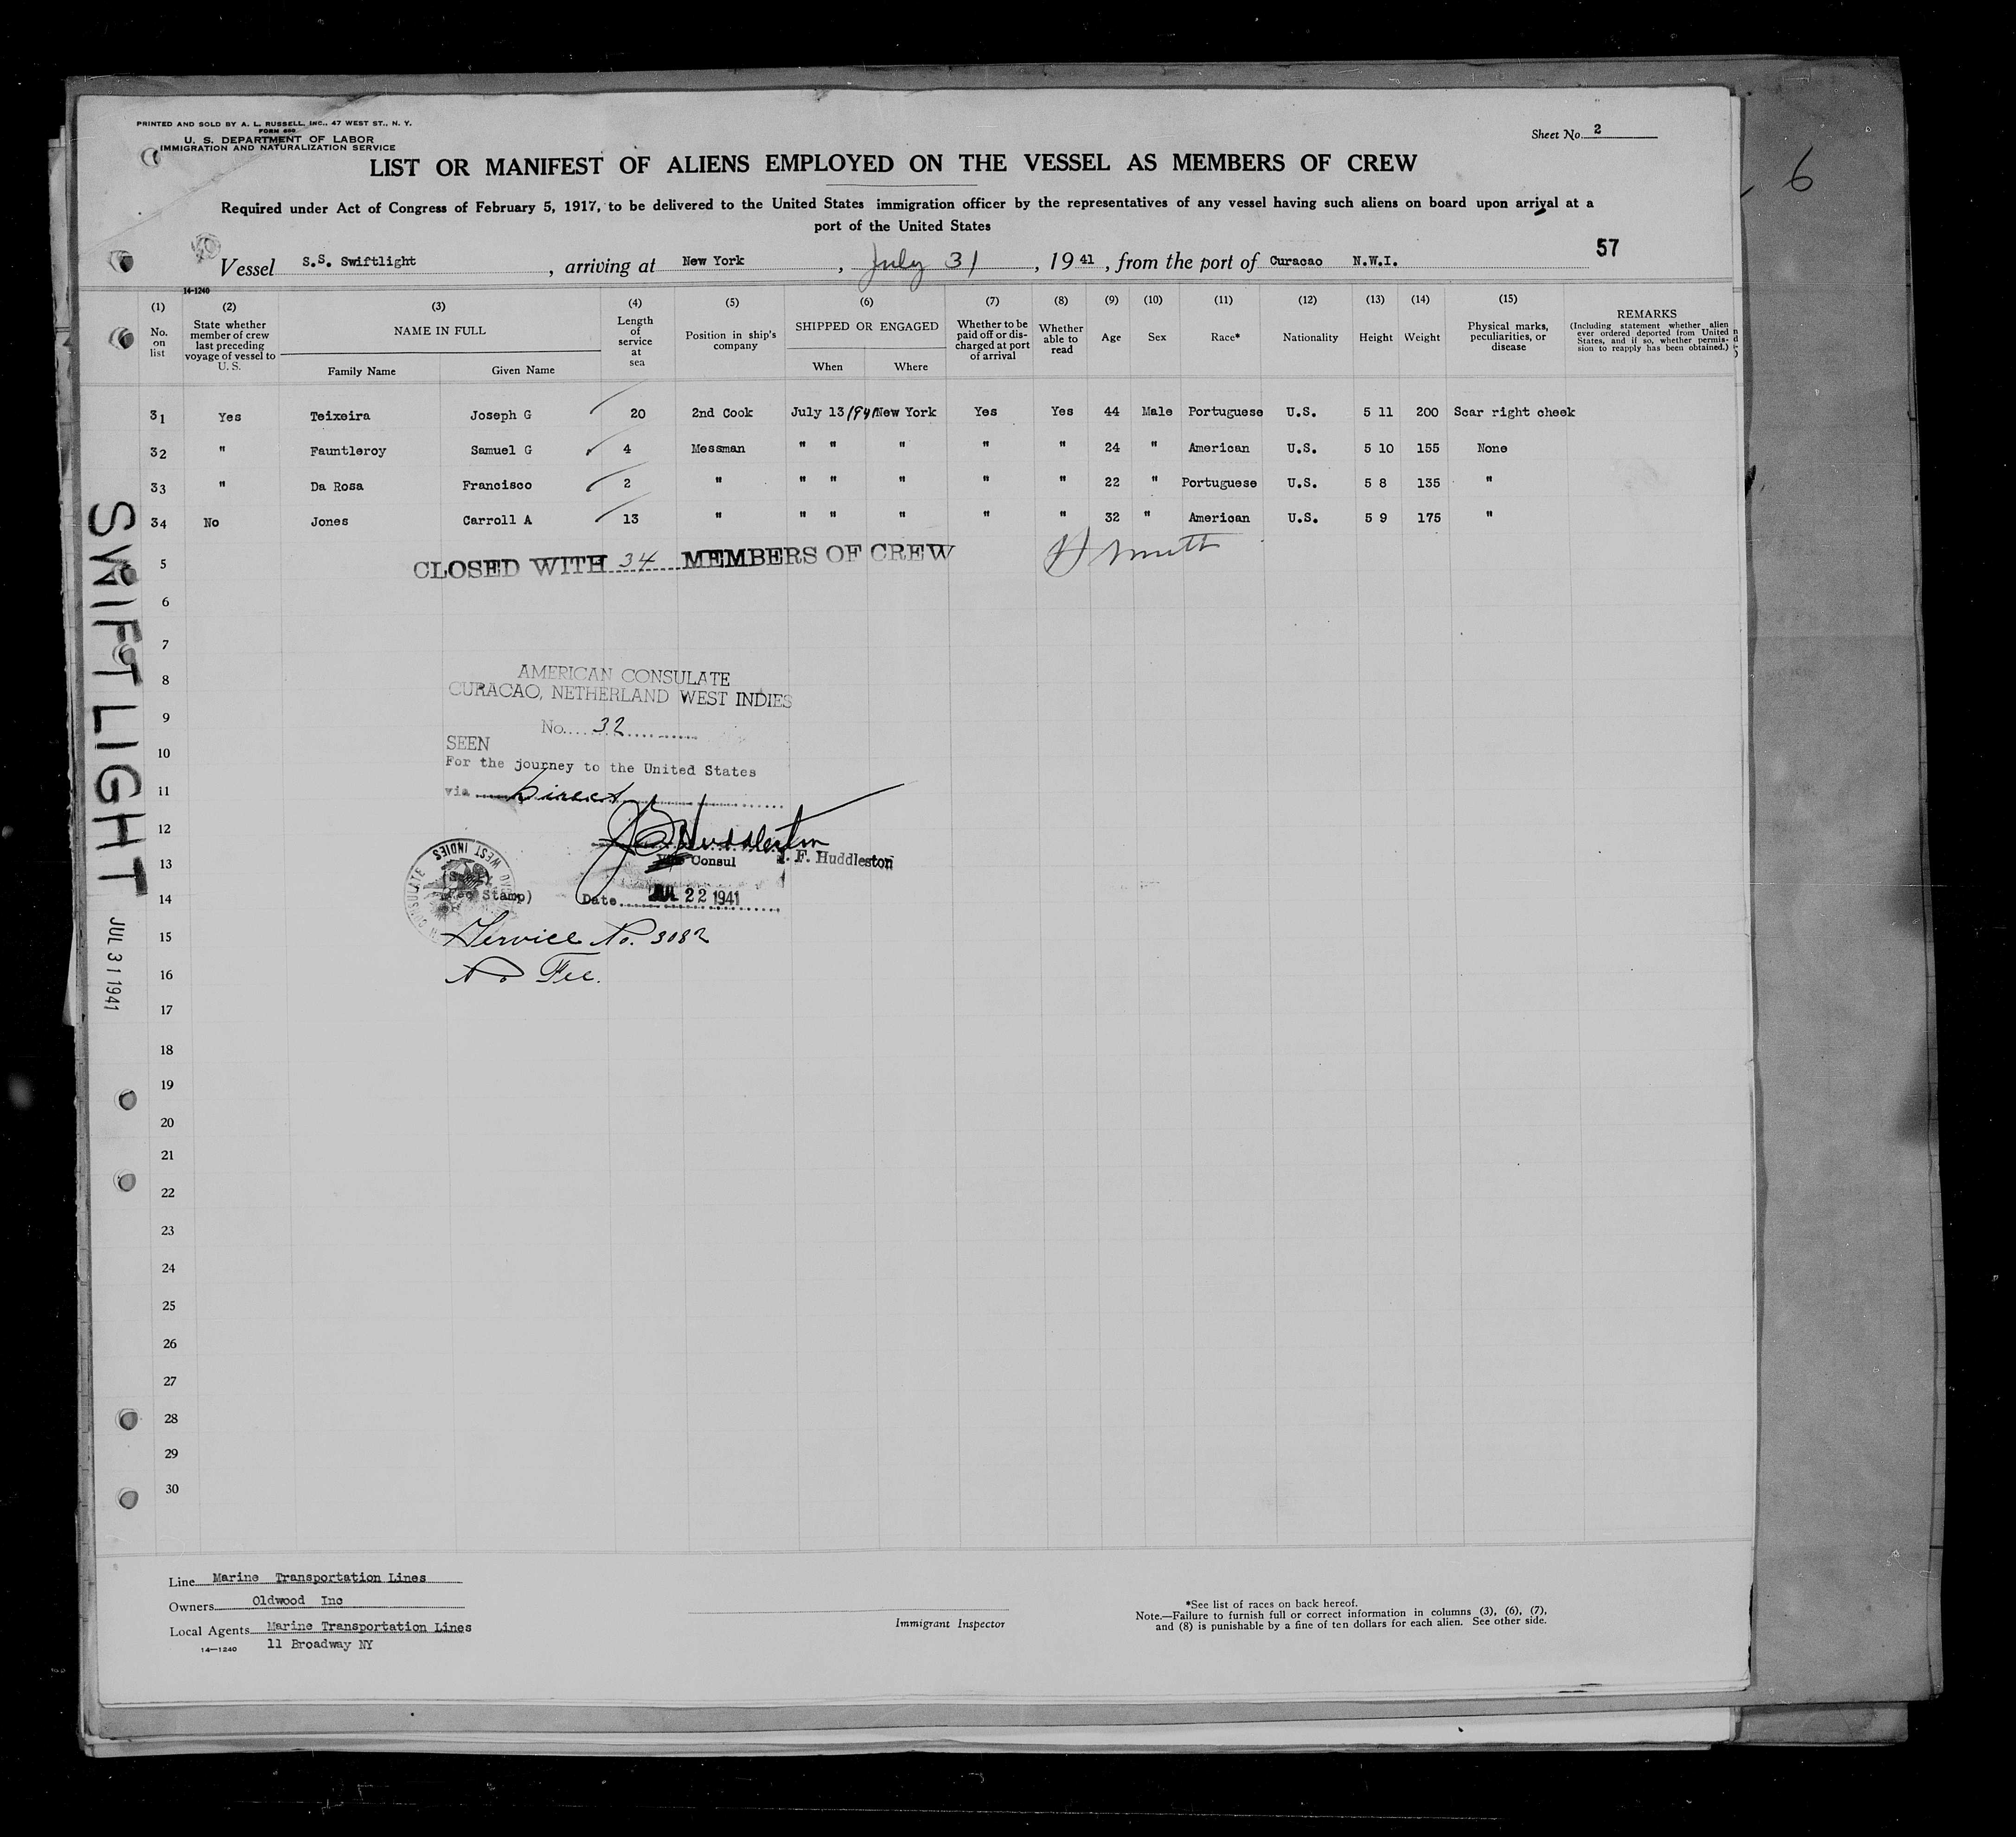 PRINTED AND SOLD BY A. L. RUSSELL, INC., 47 WEST ST., N. Y.
FORM 680
U. S. DEPARTMENT OF LABOR
IMMIGRATION AND NATURALIZATION SERVICE
Sheet No. 2
6
LIST OR MANIFEST OF ALIENS EMPLOYED ON THE VESSEL AS MEMBERS OF CREW
Required under Act of Congress of February 5, 1917, to be delivered to the United States immigration officer by the representatives of any vessel having such aliens on board upon arriyal at a
port of the United States
57
Vessel S.S. Swiftlight, arriving at New York, July 31, 1941, from the port of Curacao N.W.I.
14-1240
(1) No. on list (2) State whether member of crew last preceding voyage of vessel to U. S. (3) NAME IN FULL Family Name Given Name (4) Length of service at sea (5) Position in ship's company (6) SHIPPED OR ENGAGED When Where (7) Whether to be paid off or discharged at port of arrival (8) Whether able to read (9) Age (10) Sex (11) Race* (12) Nationality (13) Height (14) Weight (15) Physical marks, peculiarities, or disease REMARKS (Including statement whether alien ever ordered deported from United States, and if so, whether permission to reapply has been obtained.)
31 Yes Teixeira Joseph G 20 2nd Cook July 13/941 New York Yes Yes 44 Male Portuguese U.S. 5 11 200 Scar right cheek
32 " Fauntleroy Samuel G 4 Messman " " " " " 24 " American U.S. 5 10 155 None
33 " Da Rosa Francisco 2 " " " " " " 22 " Portuguese U.S. 5 8 135 "
34 No Jones Carroll A 13 " " " " " " 32 " American U.S. 5 9 175 "
5 CLOSED WITH 34 MEMBERS OF CREW
6
7
8 AMERICAN CONSULATE
CURACAO, NETHERLAND WEST INDIES
9 No. 32
SEEN
10 For the journey to the United States
11 via Direct
12
13 Consul F. Huddleston
14 Stamp) Date JUL 22 1941
15 Service No. 3082
16 No Fee.
17
18
19
20
21
22
23
24
25
26
27
28
29
30
SWIFTLIGHT
JUL 31 1941
WEST INDIES
Line Marine Transportation Lines
Owners Oldwood Inc
Local Agents Marine Transportation Lines
14—1240 11 Broadway NY
Immigrant Inspector
*See list of races on back hereof.
Note.—Failure to furnish full or correct information in columns (3), (6), (7),
and (8) is punishable by a fine of ten dollars for each alien. See other side.